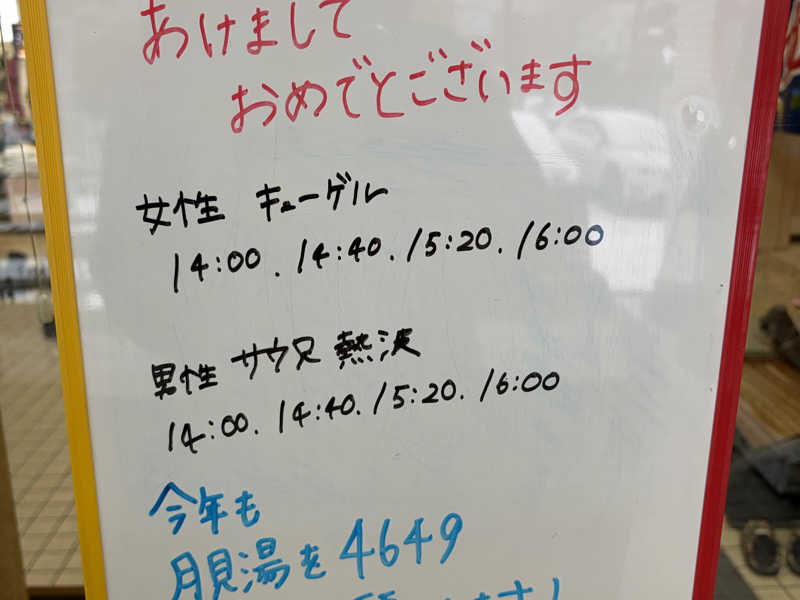 あけまして
おめでとございます
女性 キューゲル
14:00. 14:40. 15:20. 16:00
男性 サウ兄 熱波
14:00. 14:40. 15:20. 16:00
今年も
月見湯を4649